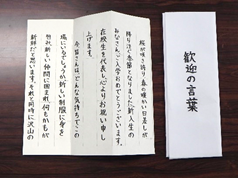 歓迎の言葉
桜が咲き誇り春の暖かい日差しが
降り注ぐ季節となりました新入生の
みなさん、ご入学おめでとうございます。
在校生を代表し心よりお祝い申し
上げます。
今皆さんは、どんな気持ちでこの
場にいるでしょうか新しい制服に身を
包み新しい仲間に囲まれ何もかもが
新鮮だと思います。それと同時に沢山の